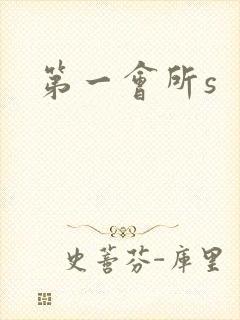 第一會所s
史蒂芬-庫里